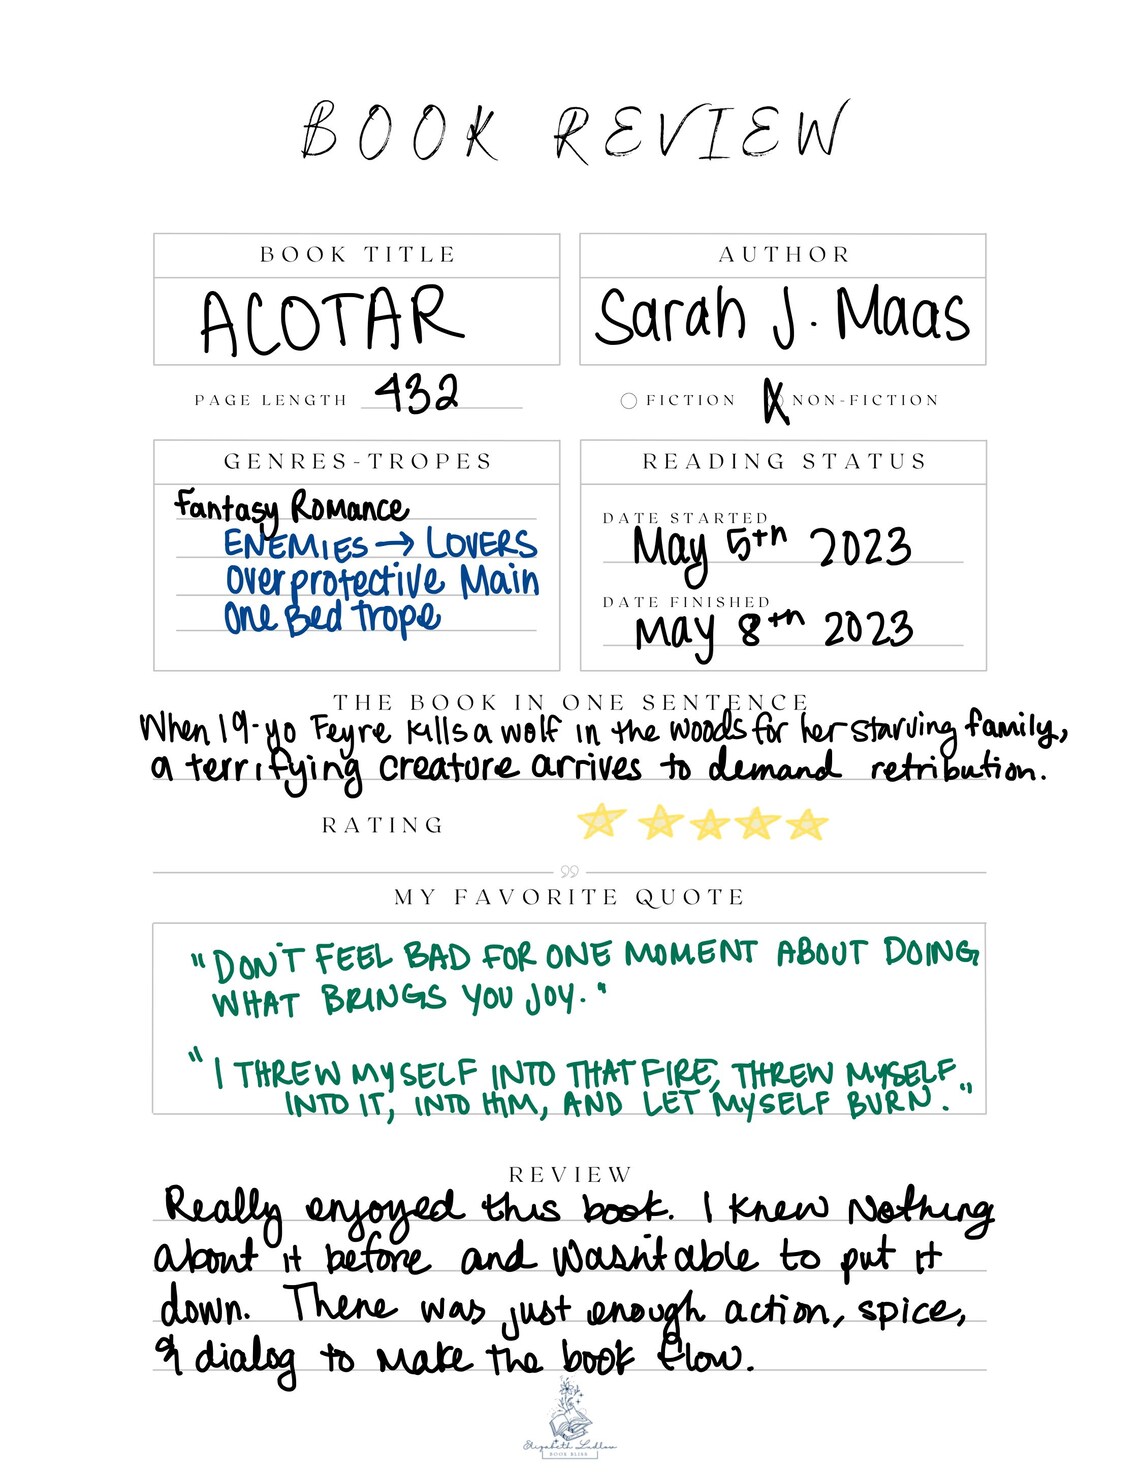 BOOK REVIEW
BOOK TITLE
ACOTAR
AUTHOR
Sarah J. Maas
PAGE LENGTH 432
FICTION NON-FICTION
GENRES-TROPES
Fantasy Romance
ENEMIES → LOVERS
Overprotective Main
One Bed Trope
READING STATUS
DATE STARTED
May 5th 2023
DATE FINISHED
May 8th 2023
THE BOOK IN ONE SENTENCE
When 19-yo Feyre kills a wolf in the woods for her starving family,
a terrifying creature arrives to demand retribution.
RATING
MY FAVORITE QUOTE
"DON'T FEEL BAD FOR ONE MOMENT ABOUT DOING
WHAT BRINGS YOU JOY."
"I THREW MYSELF INTO THAT FIRE, THREW MYSELF
INTO IT, INTO HIM, AND LET MYSELF BURN."
REVIEW
Really enjoyed this book. I knew Nothing
about it before and wasn't able to put it
down. There was just enough action, spice,
& dialog to make the book flow.
Elizabeth Ludlow
BOOK BLISS